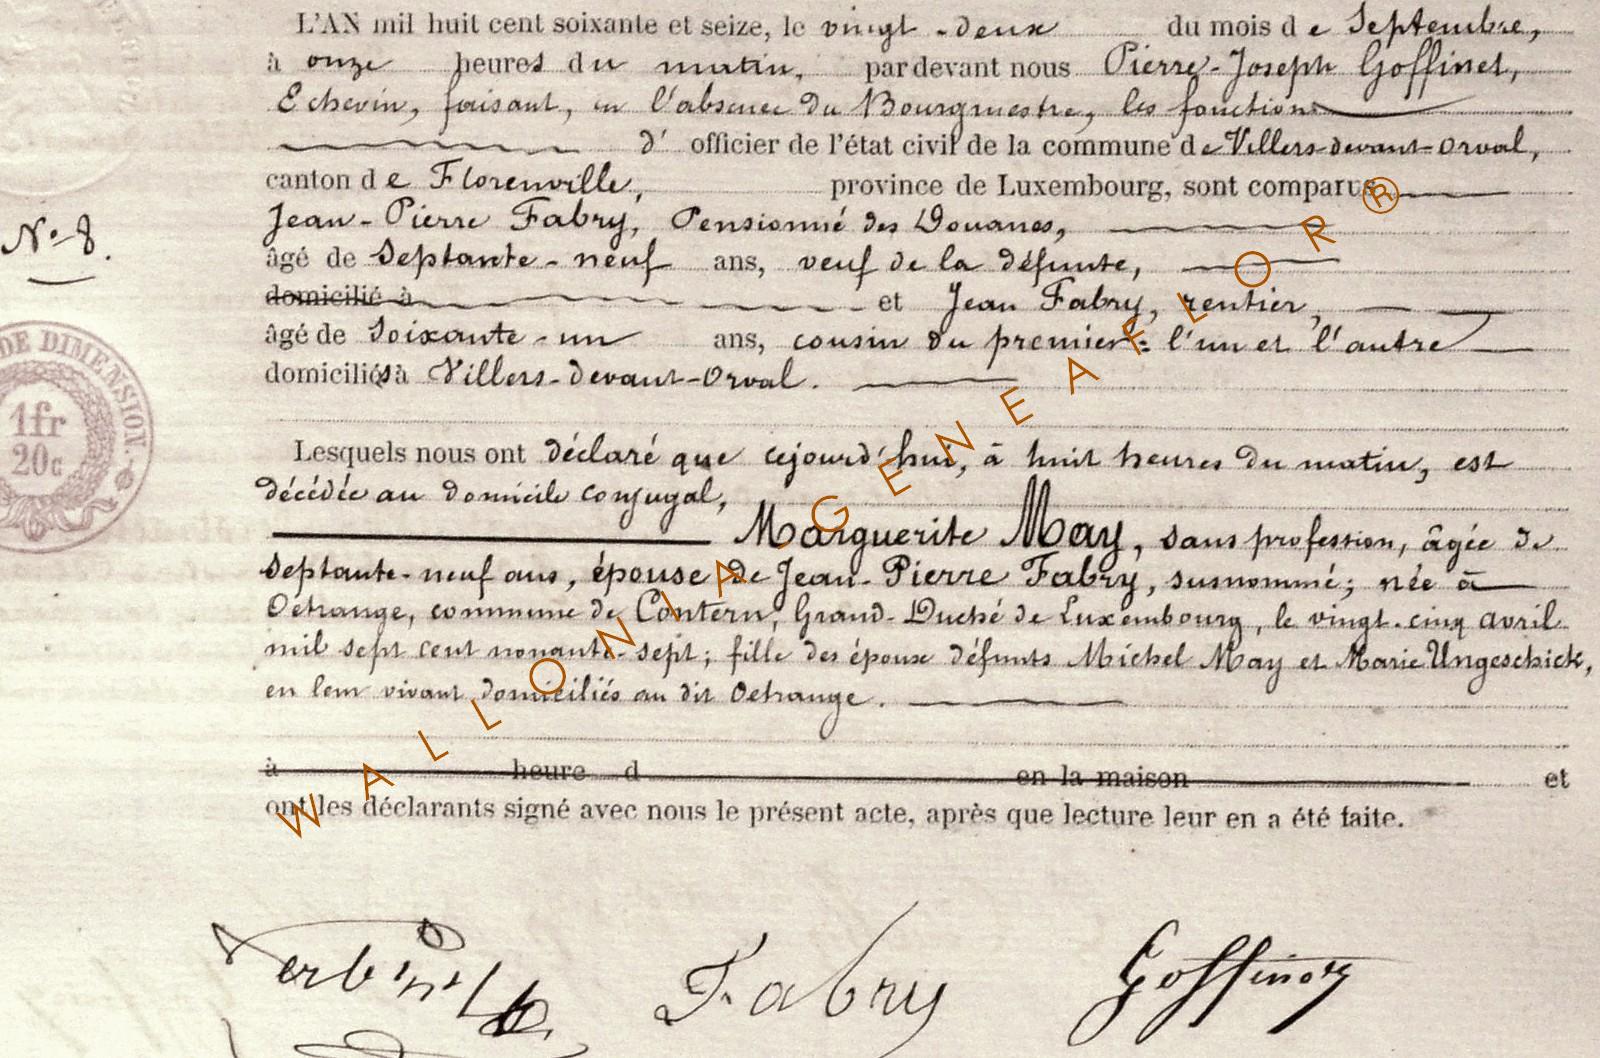 L'AN mil huit cent soixante et seize, le vingt-deux du mois de Septembre,
à onze heures du matin, pardevant nous Pierre-Joseph Goffinet,
Echevin, faisant, en l'absence du Bourgmestre, les fonctions
d' officier de l'état civil de la commune de Villers-devant-Orval,
canton de Florenville, province de Luxembourg, sont comparus
Jean-Pierre Fabry, Pensionné des Douanes,
N° 8.
âgé de Septante-neuf ans, veuf de la défunte,
domicilié à et Jean Fabry, rentier,
âgé de Soixante-un ans, cousin du premier: l'un et l'autre
domiciliés à Villers-devant-Orval.
DE DIMENSION.
1fr
20c
Lesquels nous ont déclaré que cejourd'hui, à huit heures du matin, est
décédée au domicile conjugal,
Marguerite May, sans profession, âgée de
septante-neuf ans, épouse de Jean-Pierre Fabry, susnommé; née à
Oetrange, commune de Contern, Grand-Duché de Luxembourg, le vingt-cinq avril
mil sept cent nonante-sept; fille des époux défunts Michel May et Marie Ungeschick,
en leur vivant domiciliés au dit Oetrange.
à heure d en la maison et
ont les déclarants signé avec nous le présent acte, après que lecture leur en a été faite.
WALLONIA GENEAFLOR®
Fabry Goffinet